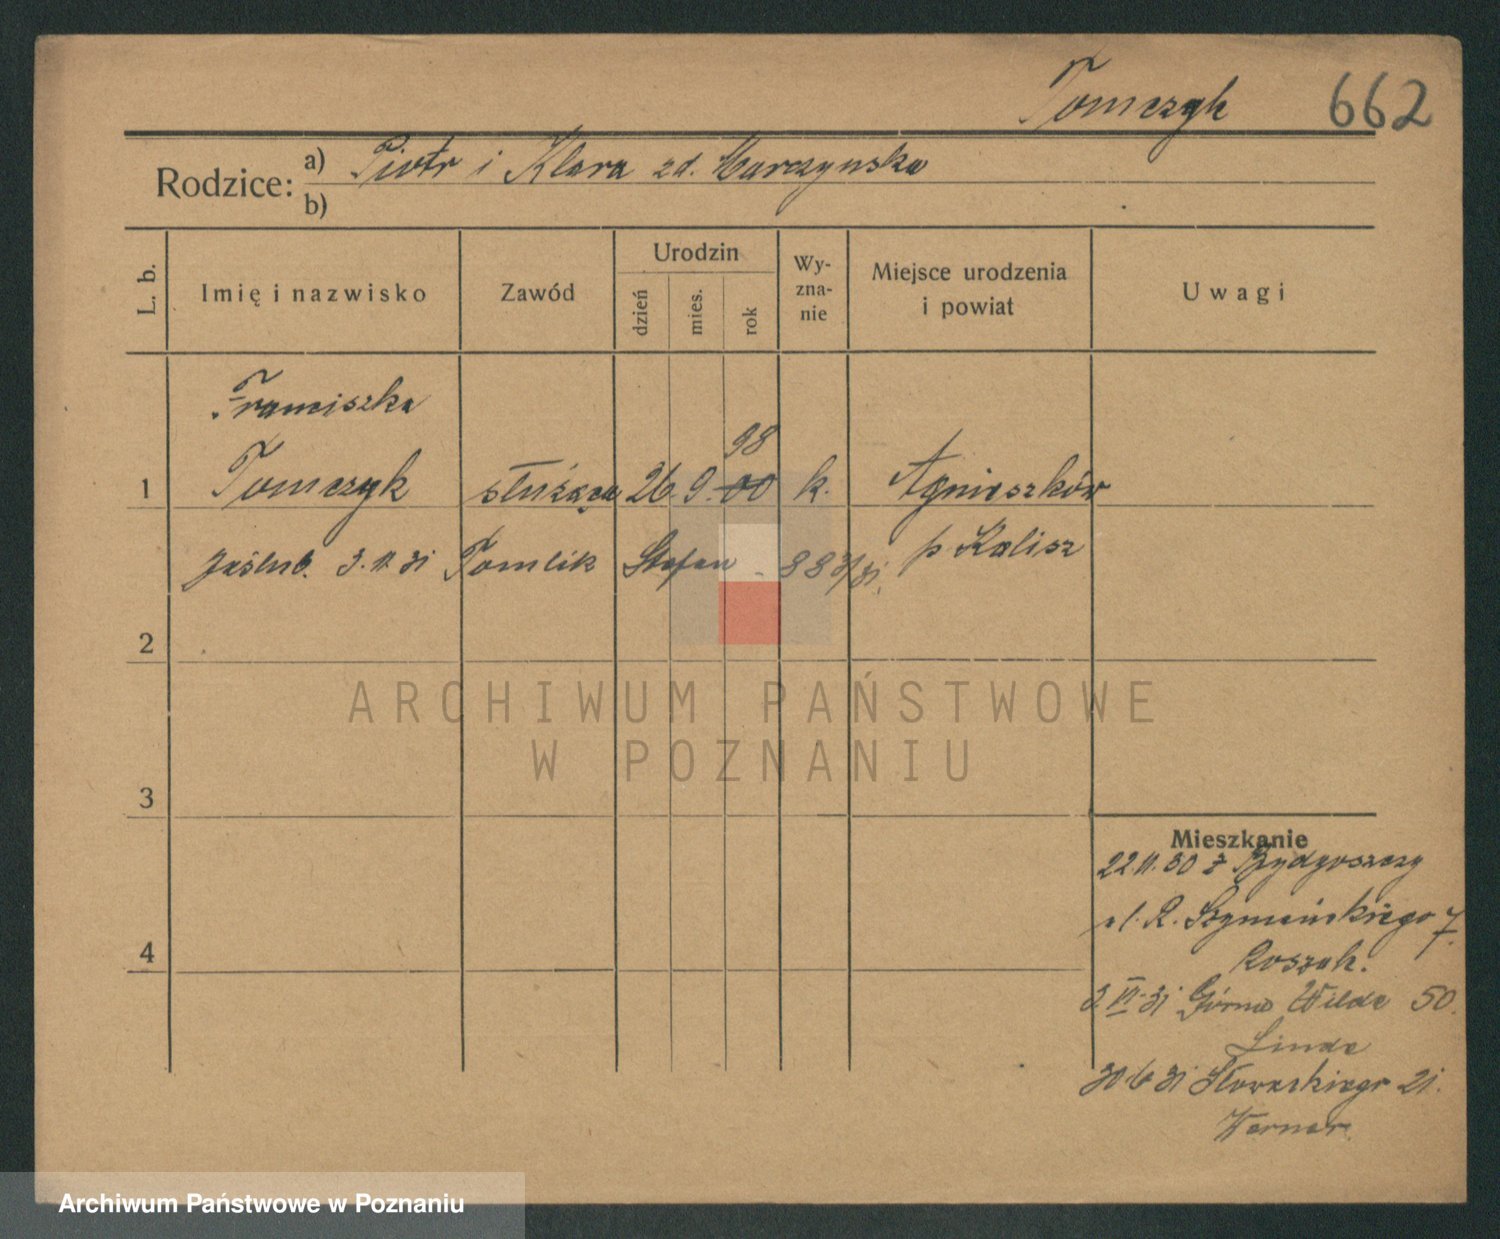 Tomczyk 662
Rodzice: a) Piotr i Klara zd. Marczyńska
b)
L. b. Imię i nazwisko Zawód Urodzin dzień mies. rok Wy-zna-nie Miejsce urodzenia i powiat Uwagi
Franciszka
98
1 Tomczyk służąca 26. 9. 00 k. Agnieszków
p Kalisz
zaślub. 3. 11. 31 Tomlik Stefan - 8831/31.
2
ARCHIWUM PAŃSTWOWE
W POZNANIU
3
Mieszkanie
22 11. 30 z Bydgoszczy
ul. R. Szymańskiego 7.
4
Roszak.
3. VI. 31 Górna Wilda 50.
Linde
30 6 31 Słowackiego 21.
Werner.
Archiwum Państwowe w Poznaniu